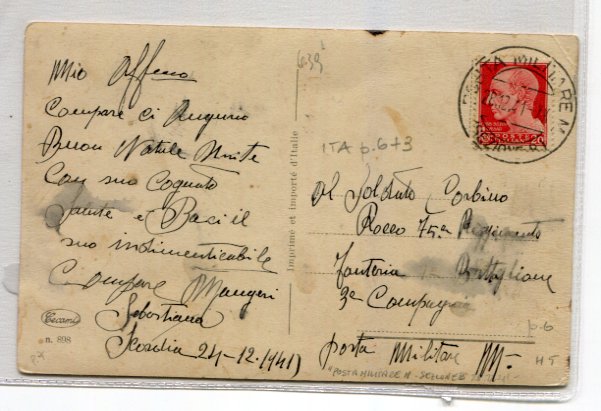 Mio Affeno
Compare Ci Auguriu
Buon Natale Unite
Con suo Cognato
Salute e Baci il
suo indimenticabile
Compare Mangeri
Sebastiano
Scordia 24-12-1941
Cecami
n. 898
Imprimé et importé d'Italie
639
ITA p.6+3
Al Soldato Corbino
Rocco 75º Reggimento
Fanteria Battaglione
3ª Compagnia
posta Militare M-
"POSTA MILITARE M - SEZIONE B
p.6
H5
POSTA MILITARE M